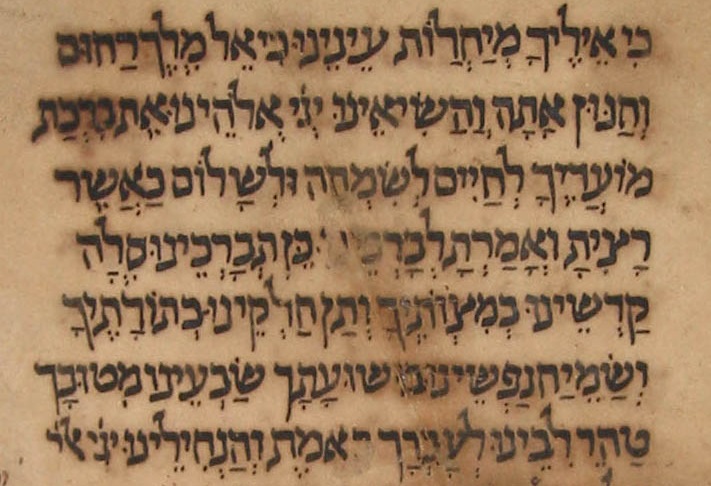 כִי אֵילֶיךָ מְיַחֲלוֹת עֵינֵינוּ כִּי אֵל מֶלֶךְ רַחוּם
וְחַנוּן אָתָה וְהַשִׂיאֵינוּ יְיָ אֱלֹהֵינוּ אֶת בִּרְכַת
מוֹעֲדֶיךָ לְחַיִים לְשִׂמְחָה וּלְשָׁלוֹם כַאֲשֶׁר
רָצִיתָ וְאָמַרְתָ לְבָרְכֵינוּ כֵּן תְבָרְכֵינוּ סֶלָה
קַדְשֵׁינוּ בְמִצְוֹתֶיךָ וְתֵן חֶלְקֵינוּ בְּתוֹרָתֶיךָ
וְשַׂמֵיחַ נַפְשֵׁינוּ שׁוּעָתָךְ שַׂבְעֵינוּ מִטוּבָךְ
טַהֵר לִבֵינוּ לְעָבְדָךְ באֶמֶת וְהַנְחִילֵינוּ יְיָ